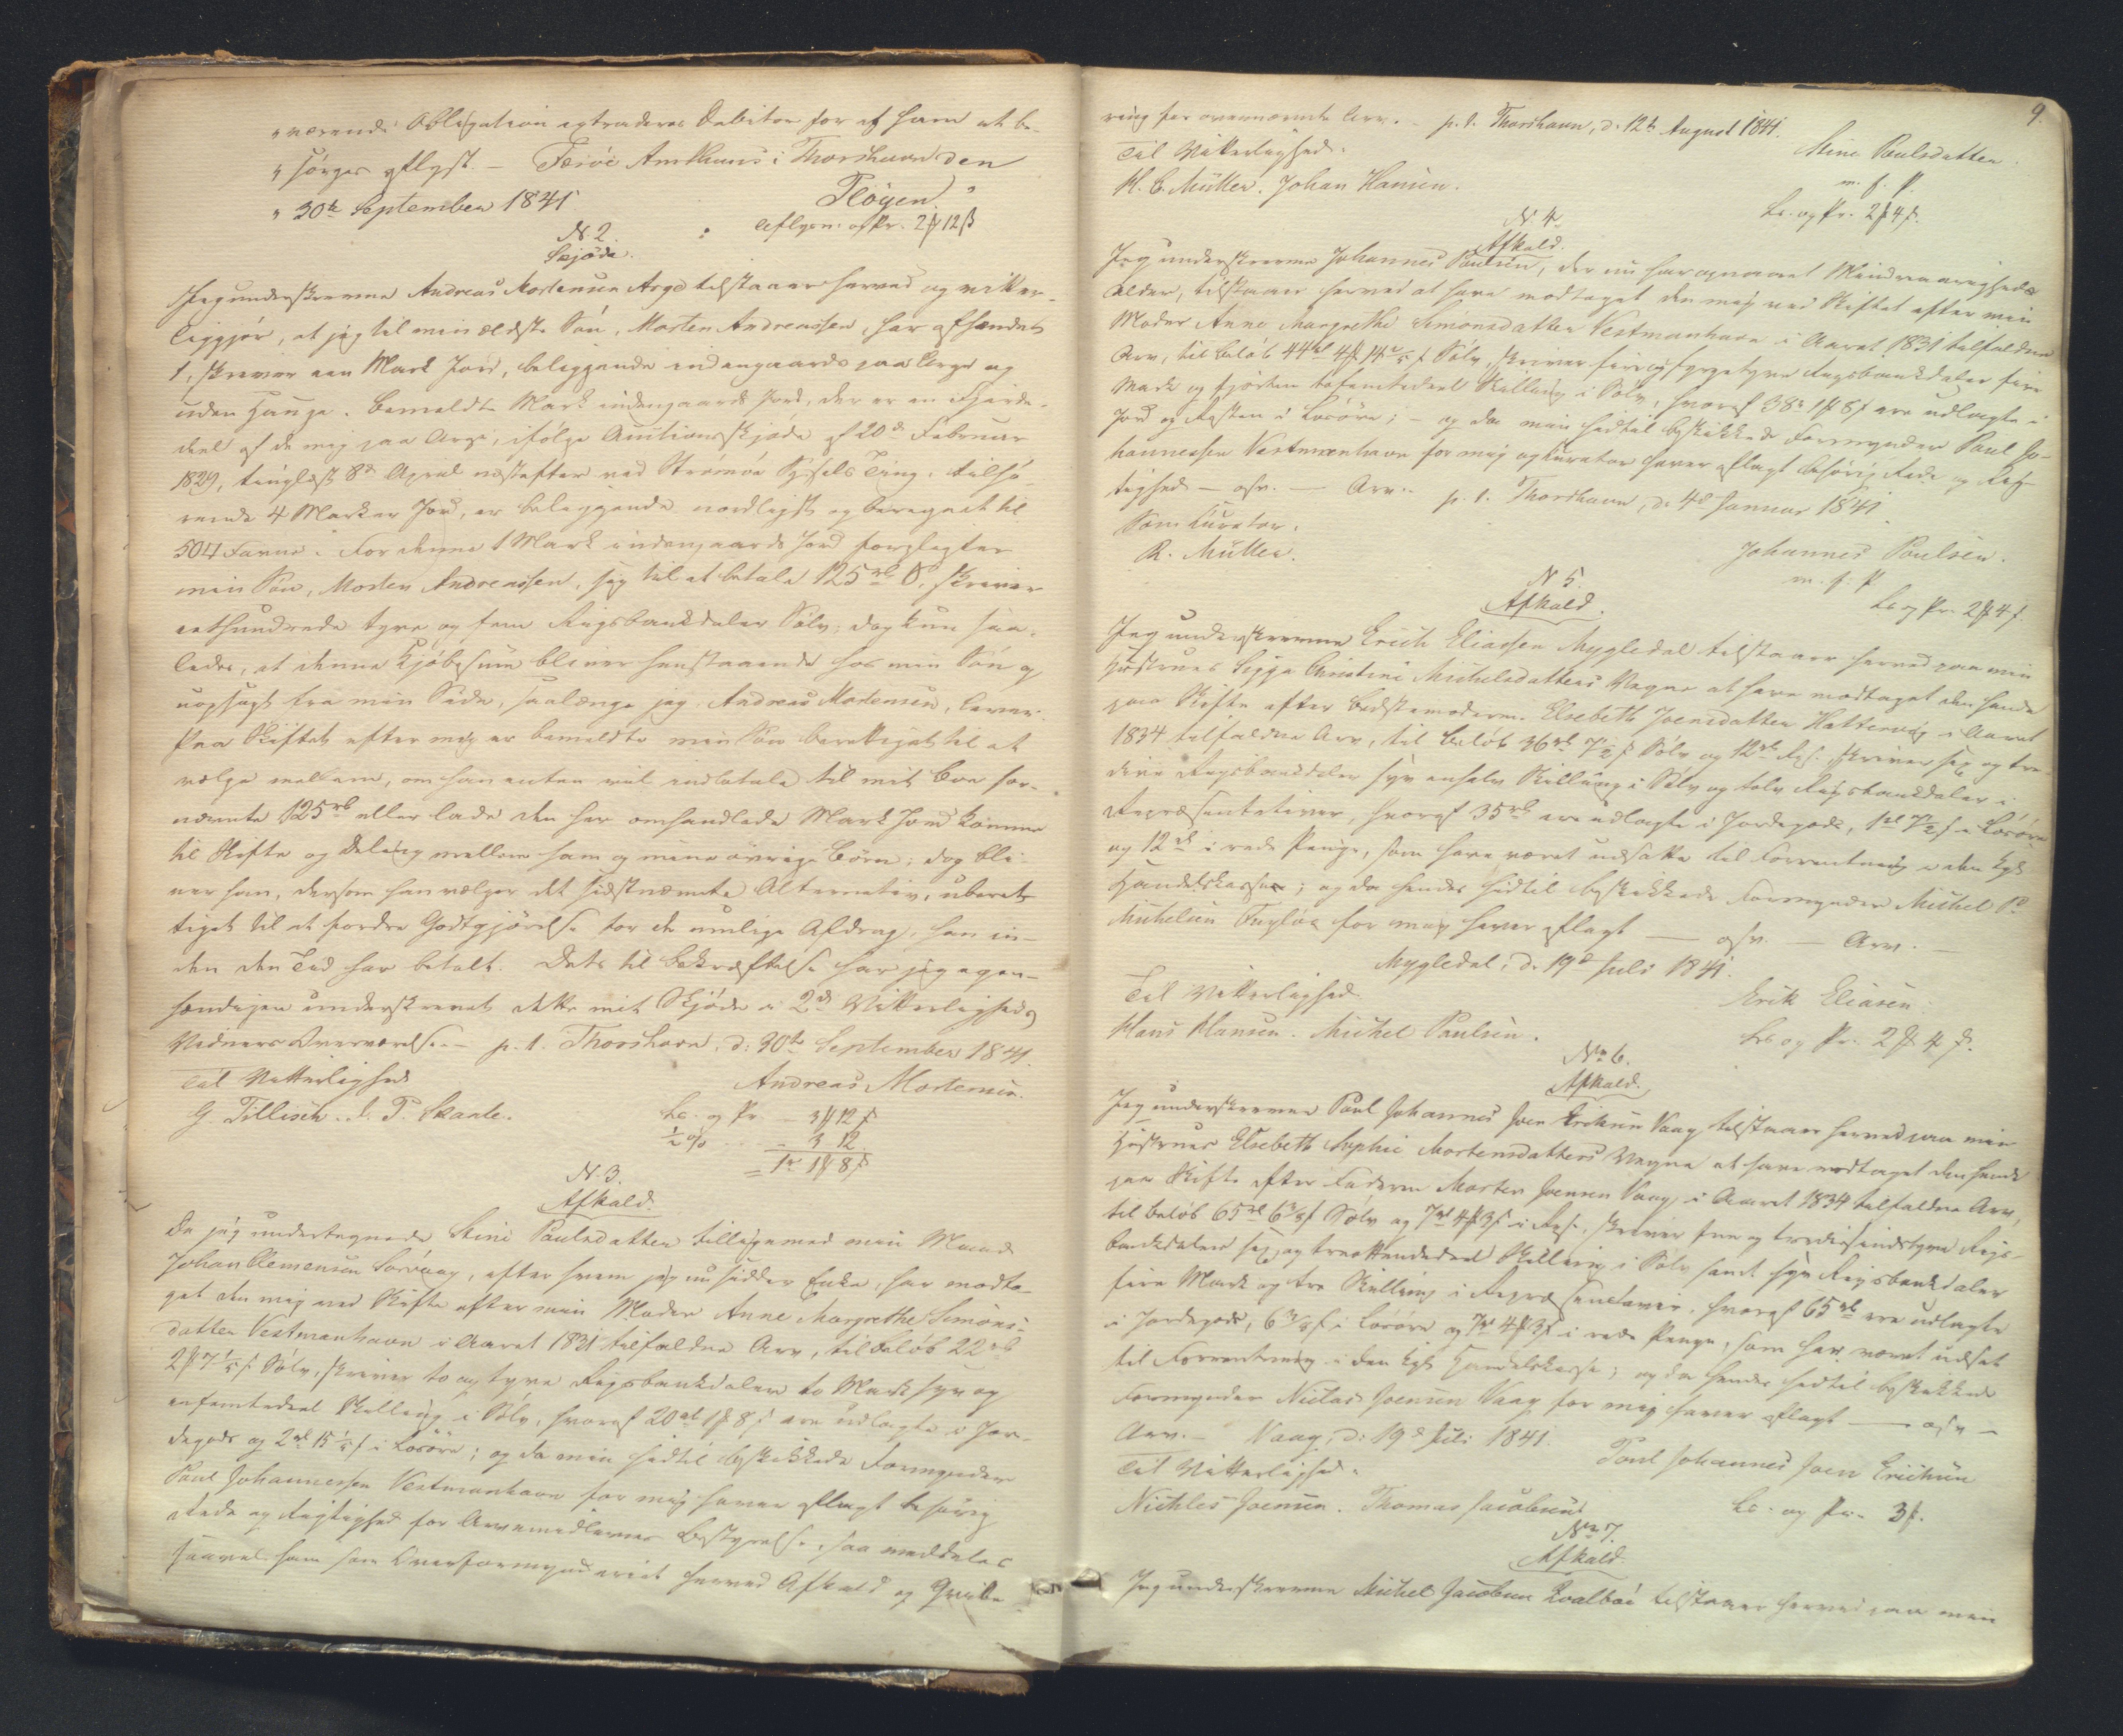 "værende Obligation extraderes Debitor for af ham at be-
"sørges aflyst. – Færöe Amthuus i Thorshavn den
"30te September 1841. Tlöyen."
Aflysn: og Pr. 2 12ß
N. 2.
Skjöde.
Jeg underskrevne Andreas Mortensen Arge tilstaaer herved og vitter-
liggjør, at jeg til min ældste Søn, Morten Andreassen, har afhændet
1, skriver een Mark Jord, beliggende indengaards paa Arge og
uden Hauge. Bemeldte Mark indengaards Jord, der er en Fjerde-
deel af de mig paa Arge, ifølge Auctionsskjøde af 20de Februar
1829, tinglæst 8de April næstefter ved Strømøe Syssels Ting, tilhø-
rende 4 Marker Jord, er beliggende nordligst og beregnet til
504 Favne. For denne 1 Mark indengaards Jord forpligter
min Søn, Morten Andreassen, sig til at betale 125 rb S., skriver
eethundrede tyve og fem Rigsbankdaler Sølv; dog kun saa-
ledes, at denne Kjøbesum bliver henstaaende hos min Søn og
uopsagt fra min Side, saalænge jeg, Andreas Mortensen, lever.
Paa Skiftet efter mig er bemeldte min Søn berettiget til at
vælge mellem, om han enten vil indbetale til mit Boe for-
nævnte 125 rb eller lade den her omhandlede Mark Jord komme
til Skifte og Deling mellem ham og mine øvrige Børn; dog bli-
ver han, dersom han vælger det sidstnævnte Alternativ, uberet-
tiget til at fordre Godtgjørelse for de mulige Afdrag, han in-
den den Tid har betalt. Dets til Bekræftelse har jeg egen-
hændigen underskrevet dette mit Skjøde i 2de Vitterligheds
Vidners Overværelse. – p. t. Thorshavn, d: 30te September 1841.
Til Vitterlighed Andreas Mortensen.
G. Tillisch. J. P. Skaale. Ls. og Pr. – 3 12 ß
½ % – 3 12
= 1 r 1 8 ß
N. 3.
Afkald.
Da jeg undertegnede Stine Paulsdatter tilligemed min Mand
Johan Clemensen Sørvaag, efter hvem jeg nu sidder Enke, har modta-
get den mig ved Skifte efter min Moder Anne Margrethe Simons-
datter Vestmanhavn i Aaret 1831 tilfaldne Arv, til Beløb 22 rb
2 7 1/5 ß Sølv, skriver to og tyve Rigsbankdaler to Mark syv og
enfemtedeel Skilling i Sølv, hvoraf 20 rb 1 8 ß ere udlagte i Jor-
degods og 2 rb 15 1/5 ß i Løsøre; og da min hidtil beskikkede Formynder
Paul Johannessen Vestmanhavn for mig haver aflagt behørig
Rede og Rigtighed for Arvemidlernes Bestyrelse, saa meddeles
saavel ham som Overformynderiet herved Afkald og Qvitte-
9.
ring for ovennævnte Arv. – p. t. Thorshavn, d. 12te August 1841.
Til Vitterlighed: Stine Paulsdatter.
H. C. Müller. Johan Hansen. m. f. P.
Ls. og Pr. 2 4 ß.
N. 4
Afkald.
Jeg underskrevne Johannes Paulsen, der nu har opnaaet Mindreaarigheds
Alder, tilstaaer herved at have modtaget den mig ved Skiftet efter min
Moder Anne Margrethe Simonsdatter Vestmanhavn i Aaret 1831 tilfaldne
Arv, til Beløb 44 rb 4 14 2/5 ß Sølv, skriver fire og fyrgetyve Rigsbankdaler fire
Mark og fjorten tofemtedeel Skilling i Sølv, hvoraf 38 r 1 8 ß ere udlagte i
Jord og Resten i Løsøre; – og da min hidtil beskikkede Formynder Paul Jo-
hannessen Vestmanhavn for mig og Curator haver aflagt behørig Rede og Rig-
tighed – osv. – Arv. p. t. Thorshavn, d. 4de Januar 1841.
Som Curator. Johannes Paulsen.
R. Müller. m. f. P
Ls og Pr. 2 4 ß.
N 5.
Afkald.
Jeg underskrevne Erich Eliassen Mygledal tilstaaer herved paa min
Hustrues Sigga Christine Michelsdatters Vegne at have modtaget den hende
paa Skifte efter Bedstemoderen Elsebeth Joensdatter Hattervig i Aaret
1834 tilfaldne Arv, til Beløb 36 rb 7½ ß Sølv og 12 rb Rep., skriver sex og tre-
dive Rigsbankdaler syv enhalv Skilling i Sølv og tolv Rigsbankdaler i
Repræsentativer, hvoraf 35 rb ere udlagte i Jordegods, 1 rb 7½ ß i Løsøre
og 12 rb i rede Penge, som have været udsatte til Forrentning i den kgl.
Handelskasse; og da hendes hidtil beskikkede Formynder Michel P.
Michelsen Fugløe for mig haver aflagt – osv. – Arv. –
Mygledal, d. 19de Juli 1841.
Til Vitterlighed Erik Eliasen.
Hans Hansen. Michel Paulsen. Ls og Pr. 2 4 ß.
No 6.
Afkald.
Jeg underskrevne Paul Johannes Joen Erichsen Vaag tilstaaer herved paa min
Hustrues Elsebeth Sophie Mortensdatters Vegne at have modtaget den hende
paa Skifte efter Faderen Morten Joensen Vaag i Aaret 1834 tilfaldne Arv,
til Beløb 65 rb 6 3/8 ß Sølv og 7 rb 4 3 ß i Rep., skriver fem og tredsindstyve Rigs-
bankdaler sex og treottendedeel Skilling i Sølv samt syv Rigsbankdaler
fire Mark og tre Skilling i Repræsentativer, hvoraf 65 rb ere udlagte
i Jordegods, 6 3/8 ß i Løsøre og 7 rb 4 3 ß i rede Penge, som har været udsat
til Forrentning i den kgl. Handelskasse; og da hendes hidtil beskikkede
Formynder Niclas Joensen Vaag for mig haver aflagt – osv –
Arv. – Vaag, d: 19de Juli 1841.
Til Vitterlighed: Poul Johannes Joen Erichsen
Nichles Joensen. Thomas Jacobsen. Ls. og Pr. 3 ß.
No 7.
Afkald.
Jeg underskrevne Michel Jacobsen Qvalbøe tilstaaer herved paa min